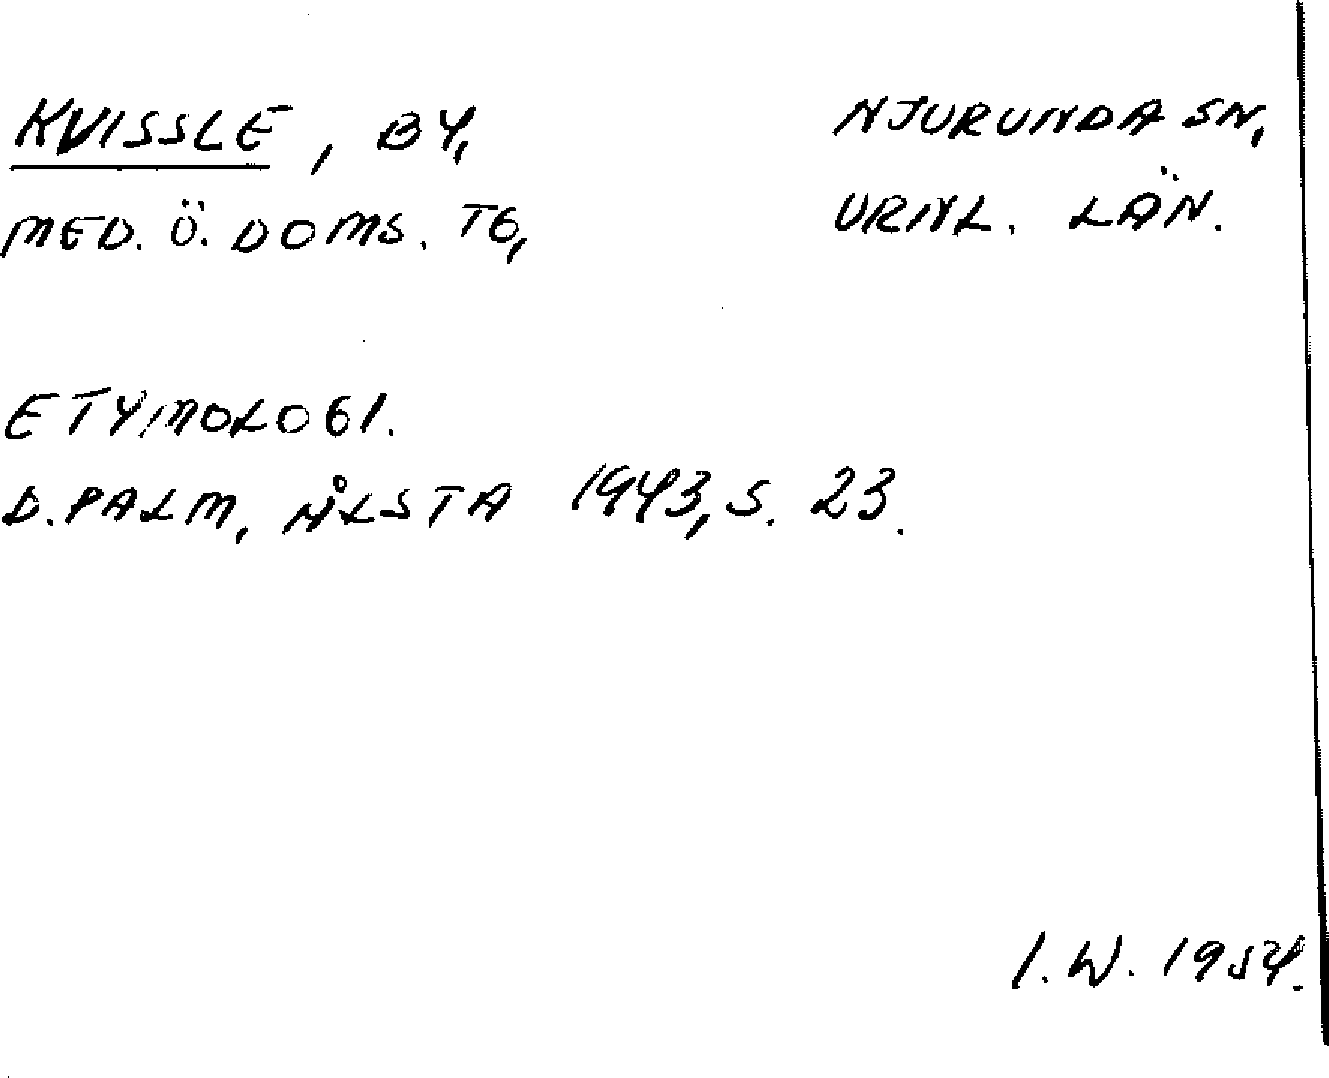 KVISSLE, BY,
NJURUNDA SN,
MED. Ö. DOMS. TG,
VRNL. LÄN.
ETYMOLOGI.
D. PALM, ÅLSTA 1943, S. 23.
I. W. 1954.